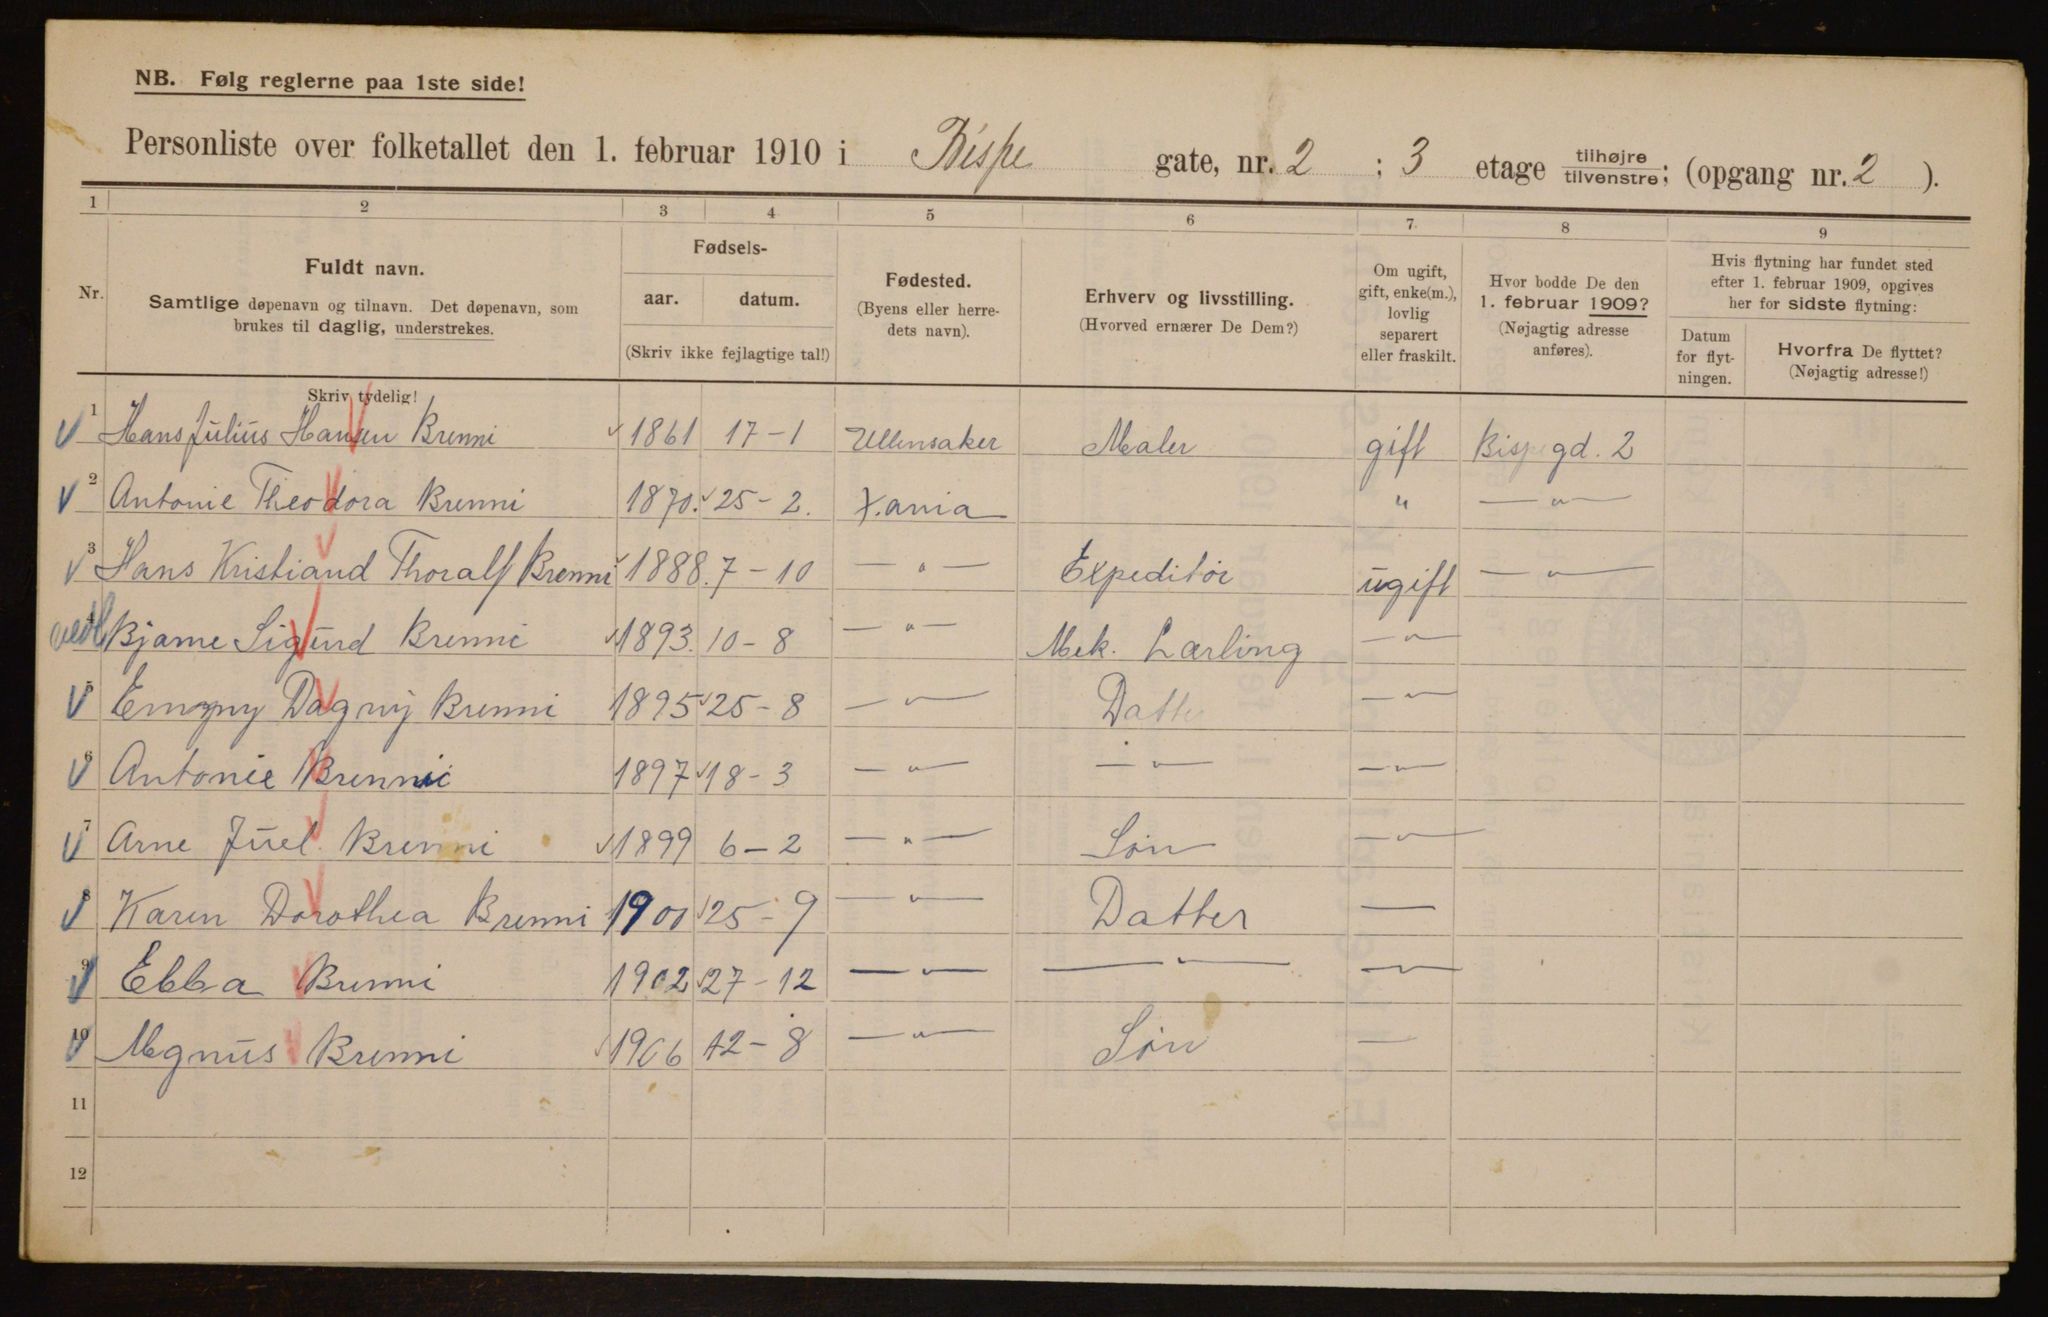 NB. Følg reglerne paa 1ste side!
Personliste over folketallet den 1. februar 1910 i Bispe gate, nr. 2 ; 3 etage tilhøjre tilvenstre; (opgang nr. 2 ).
1 2 3 4 5 6 7. 8 9
Nr. Fuldt navn. Samtlige døpenavn og tilnavn. Det døpenavn, som brukes til daglig, understrekes.
Fødsels- aar. datum. (Skriv ikke fejlagtige tal!)
Fødested. (Byens eller herredets navn).
Erhverv og livsstilling. (Hvorved ernærer De Dem?)
Om ugift, gift, enke(m.), lovlig separert eller fraskilt.
Hvor bodde De den 1. februar 1909? (Nøjagtig adresse anføres).
Hvis flytning har fundet sted efter 1. februar 1909, opgives her for sidste flytning:
Datum for flytningen. Hvorfra De flyttet? (Nøjagtig adresse!)
Skriv tydelig!
1 Hans Julius Hansen Brenni 1861 17-1 Ullensaker Maler gift Bispegd. 2
2 Antonie Theodora Brenni 1870. 25-2. X.ania " —"—
3 Hans Kristiand Thoralf Brenni 1888. 7-10 —"— Expeditør ugift —"—
4 Bjarne Sigurd Brenni 1893. 10-8 —"— Mek. Lærling —"—
5 Dagny Brenni 1895 25-8 —"— Datter —"—
6 Antonie Brenni 1897 18-3 —"— —"— —"—
7 Arne Juel Brenni 1899 6-2 —"— Søn —"—
8 Karen Dorothea Brenni 1900 25-9 —"— Datter —
9 Ebba Brenni 1902 27-12 —"— —"— —"—
10 Magnus Brenni 1906 12-8 —"— Søn —
11
12